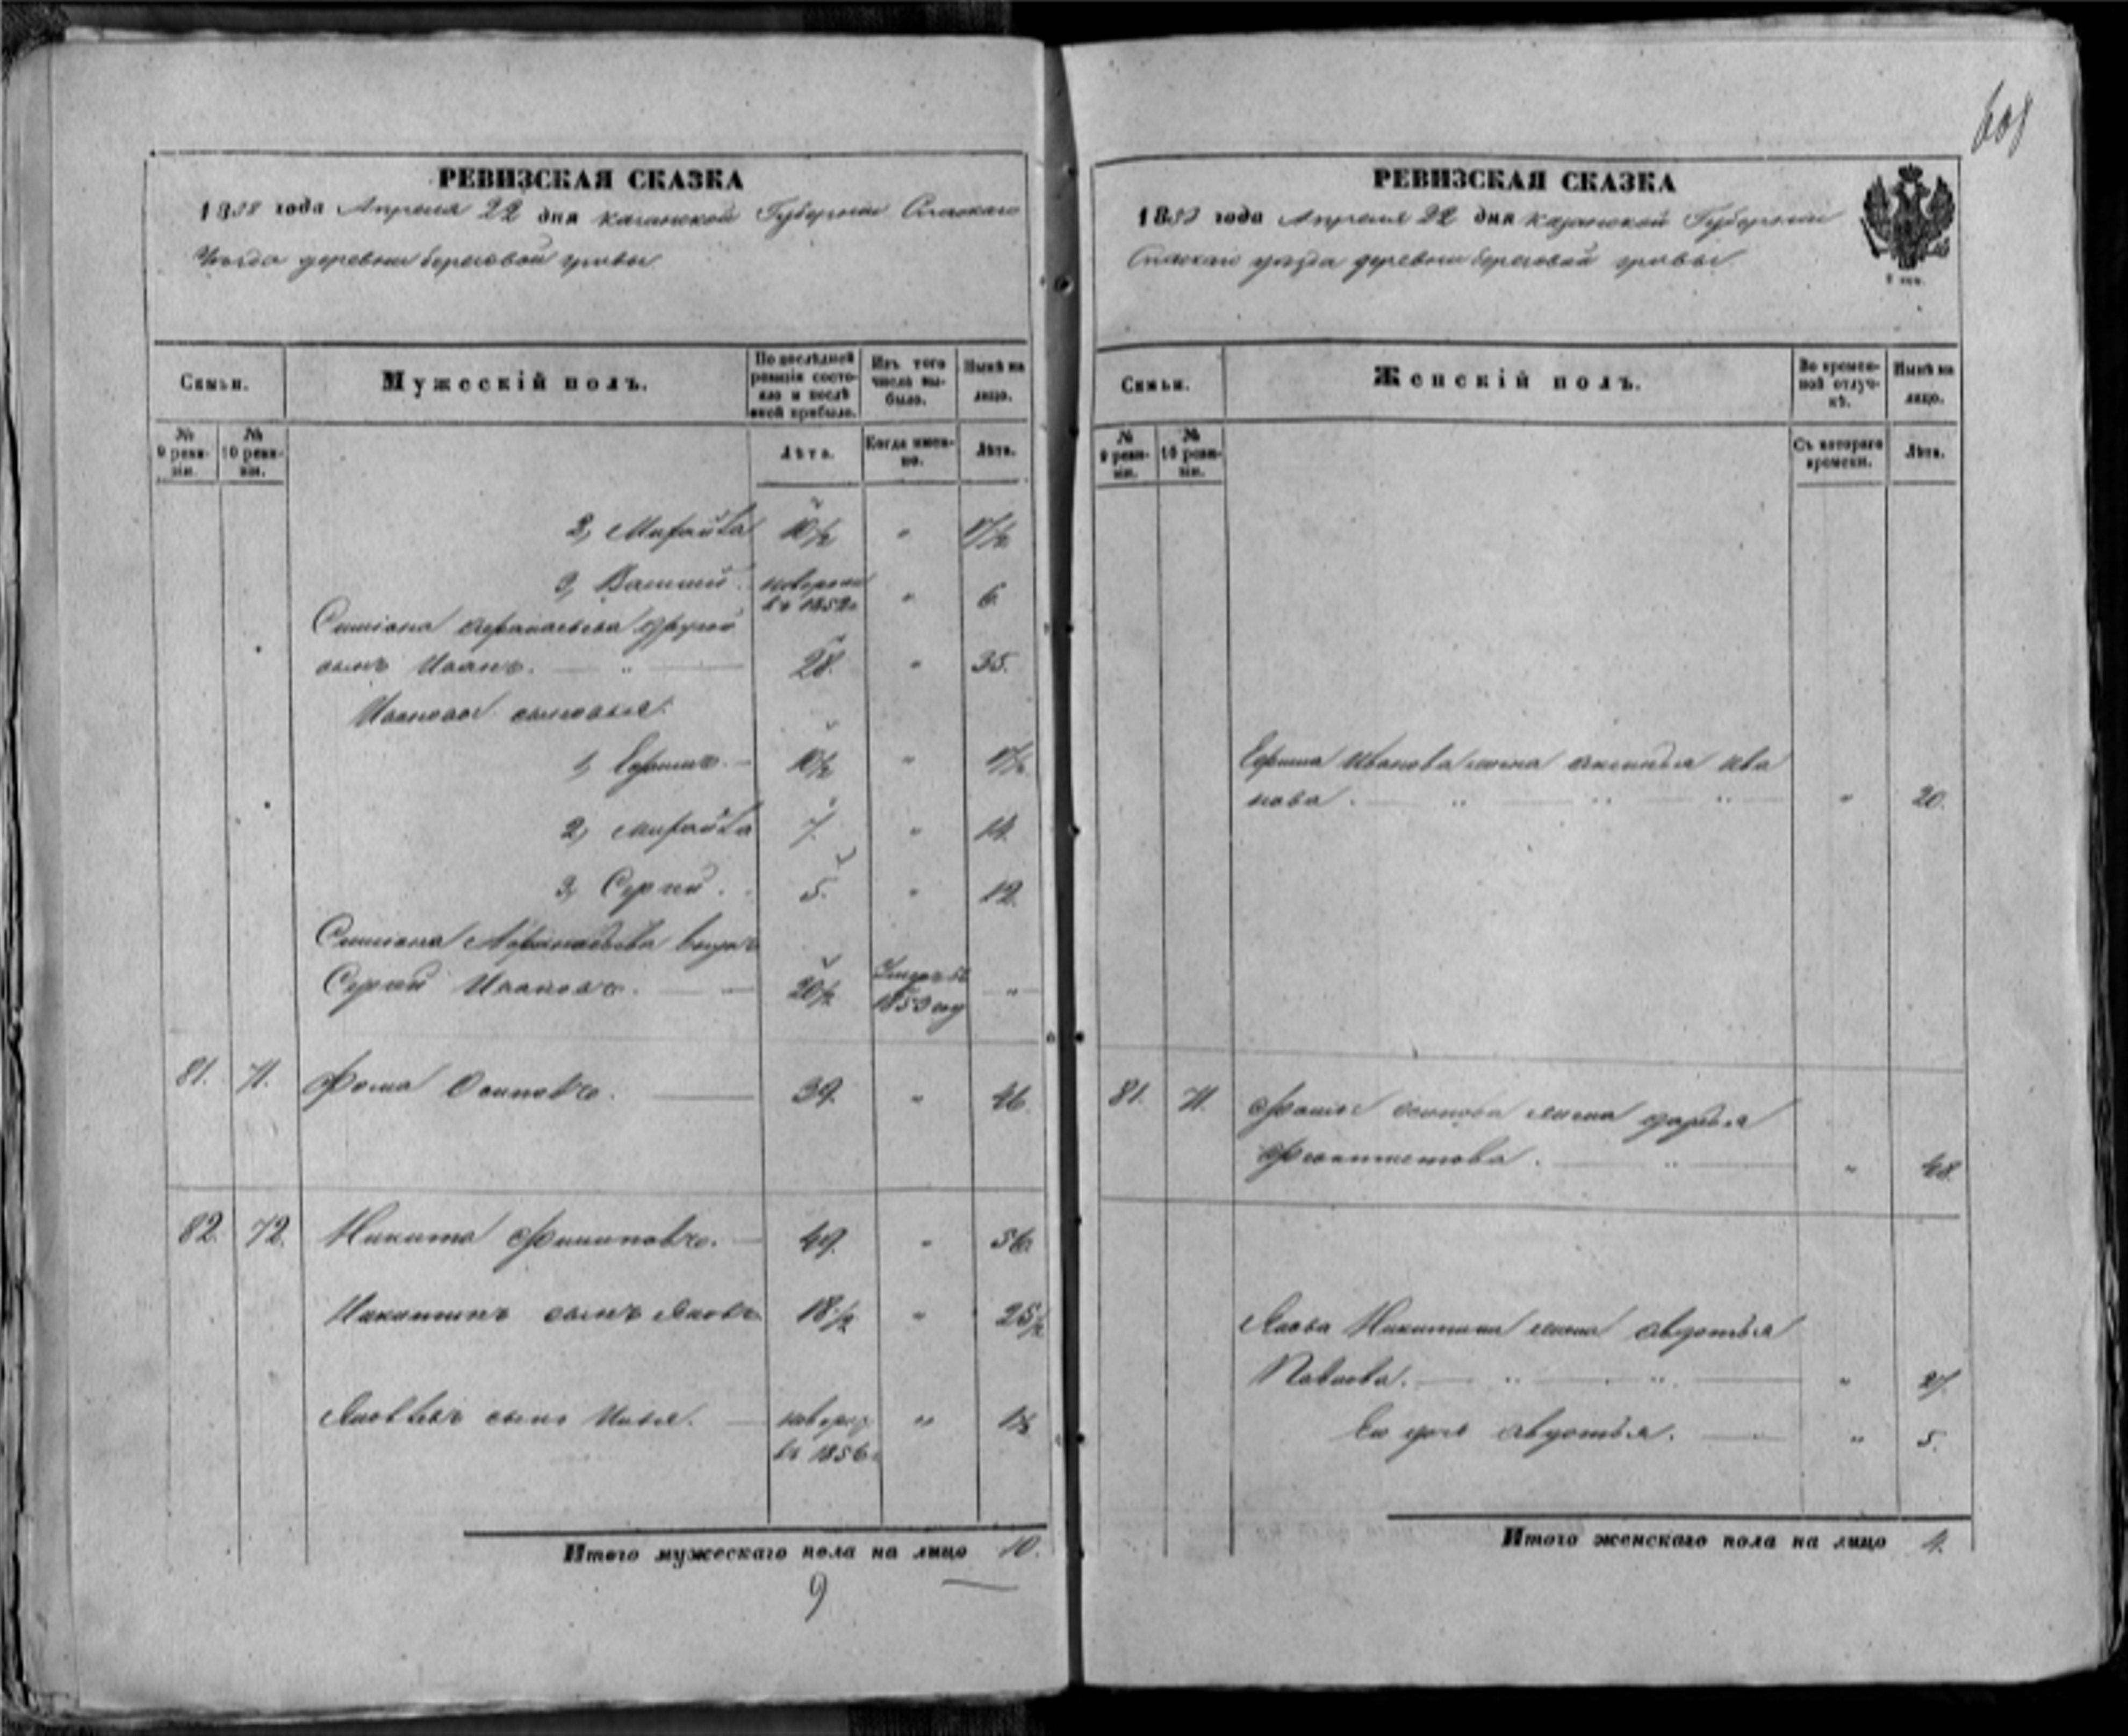 608
РЕВИЗСКАЯ СКАЗКА
1858 года Апреля 22 дня Казанской Губернии Спаскаго
Уезда деревни береговой гривы
Семьи.
Мужескій полъ.
По послѣдней ревизіи состояло и послѣ оной прибыло.
Изъ того числа выбыло.
Нынѣ на лицо.
№ 9 ревизіи.
№ 10 ревизіи.
Лѣта.
Когда именно.
Лѣта.
2, Михайла 10/2 " 17/2
3, Василий новорожд " 6.
въ 1852г
Симiона Афанасьева другой
сынъ Иванъ. 28. " 35.
Ивановы сыновья:
1, Ефимъ. 10/2 " 17/2
2, Михайла 7. " 14.
3, Сергей. 5. " 12.
Симiона Афанасьева внукъ
Сергей Ивановъ. 20/2 1853 году "
81. 71. Фома Осиповъ. 39. " 46.
82. 72. Никита Филиповъ. 49. " 56.
Никитинъ сынъ Яковъ 18/2 " 25/2
Яковлевъ сынъ Илья. новорожд " 1/2
въ 1856г
Итого мужескаго пола на лицо 10.
9
РЕВИЗСКАЯ СКАЗКА
1858 года Апреля 22 дня Казанской Губернии
Спаскаго уезда деревни береговой гривы
Семьи.
Женскій полъ.
Во временной отлучкѣ.
Нынѣ на лицо.
№ 9 ревизіи.
№ 10 ревизіи.
Съ котораго времени.
Лѣта.
Ефима Иванова жена Аксинья Ива
нова. " 20.
81. 71. Фомы Осипова жена Дарья
Феоктистова. " 48.
Якова Никитина жена Авдотья
Павлова. " 27.
Ею дочь Авдотья. " 5.
Итого женскаго пола на лицо 4.